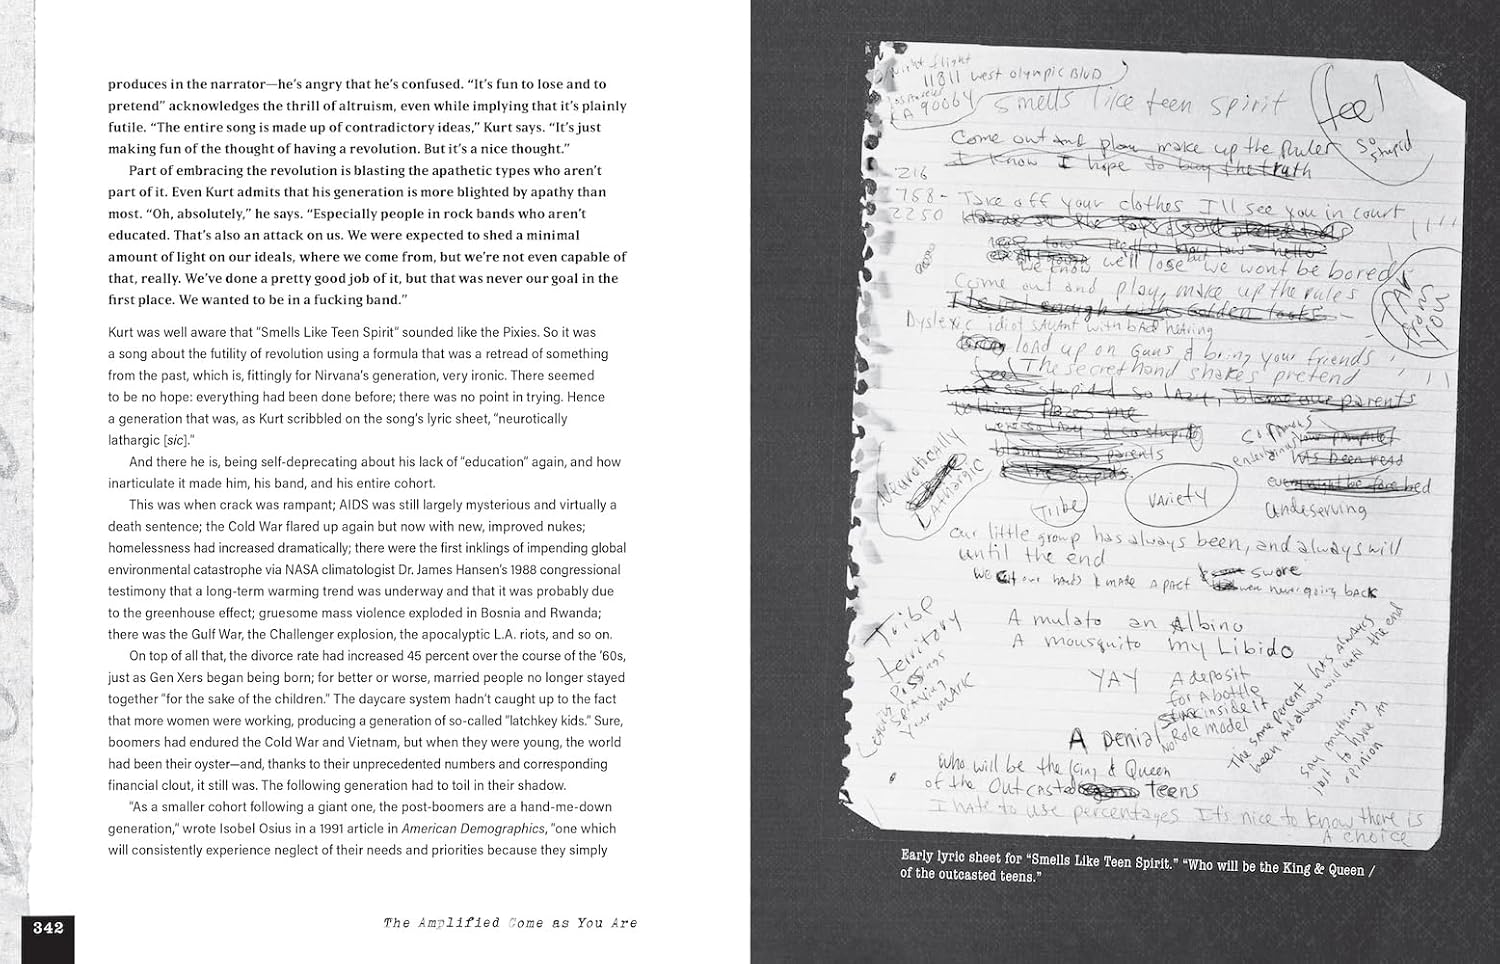 produces in the narrator—he's angry that he's confused. “It's fun to lose and to
pretend” acknowledges the thrill of altruism, even while implying that it's plainly
futile. “The entire song is made up of contradictory ideas,” Kurt says. “It's just
making fun of the thought of having a revolution. But it's a nice thought.”
Part of embracing the revolution is blasting the apathetic types who aren't
part of it. Even Kurt admits that his generation is more blighted by apathy than
most. “Oh, absolutely,” he says. “Especially people in rock bands who aren't
educated. That's also an attack on us. We were expected to shed a minimal
amount of light on our ideals, where we come from, but we're not even capable of
that, really. We've done a pretty good job of it, but that was never our goal in the
first place. We wanted to be in a fucking band.”
Kurt was well aware that “Smells Like Teen Spirit” sounded like the Pixies. So it was
a song about the futility of revolution using a formula that was a retread of something
from the past, which is, fittingly for Nirvana's generation, very ironic. There seemed
to be no hope: everything had been done before; there was no point in trying. Hence
a generation that was, as Kurt scribbled on the song's lyric sheet, “neurotically
lathargic [sic].”
And there he is, being self-deprecating about his lack of “education” again, and how
inarticulate it made him, his band, and his entire cohort.
This was when crack was rampant; AIDS was still largely mysterious and virtually a
death sentence; the Cold War flared up again but now with new, improved nukes;
homelessness had increased dramatically; there were the first inklings of impending global
environmental catastrophe via NASA climatologist Dr. James Hansen's 1988 congressional
testimony that a long-term warming trend was underway and that it was probably due
to the greenhouse effect; gruesome mass violence exploded in Bosnia and Rwanda;
there was the Gulf War, the Challenger explosion, the apocalyptic L.A. riots, and so on.
On top of all that, the divorce rate had increased 45 percent over the course of the '60s,
just as Gen Xers began being born; for better or worse, married people no longer stayed
together “for the sake of the children.” The daycare system hadn't caught up to the fact
that more women were working, producing a generation of so-called “latchkey kids.” Sure,
boomers had endured the Cold War and Vietnam, but when they were young, the world
had been their oyster—and, thanks to their unprecedented numbers and corresponding
financial clout, it still was. The following generation had to toil in their shadow.
“As a smaller cohort following a giant one, the post-boomers are a hand-me-down
generation,” wrote Isobel Osius in a 1991 article in American Demographics, “one which
will consistently experience neglect of their needs and priorities because they simply
342
The Amplified Come as You Are
Night flight
11811 west olympic Blvd
Los Angeles
CA 90064
Smells like teen spirit
feel
so stupid
Come out and play make up the Rules
I know I hope to buy the truth
216
758-
2250
Take off your clothes I'll see you in court
we know we'll lose but we wont be bored
Come out and play, make up the rules
Dyslexic idiot savant with bad hearing
load up on Guns & bring your friends
The secret hand shakes pretend
feel
were so stupid so lazy, blame our parents
were so lazy & so stupid
blame our parents
Neurotically
Lathargic
Tribe
Variety
undeserving
our little group has always been, and always will
until the end
we cut our hands & made a pact swore
never going back
A mulato an Albino
A mousquito my Libido
YAY
A deposit
for A bottle
stick inside it
No Role model
A Denial
Tribe
territory
Leaving
Pissings
Spraying
Your mark
The same percent Has always
been And always will until the end
Say anything
just to have an
opinion
Who will be the King & Queen
of the Outcasted teens
I hate to use percentages It's nice to know there is
A choice
Early lyric sheet for “Smells Like Teen Spirit.” “Who will be the King & Queen /
of the outcasted teens.”